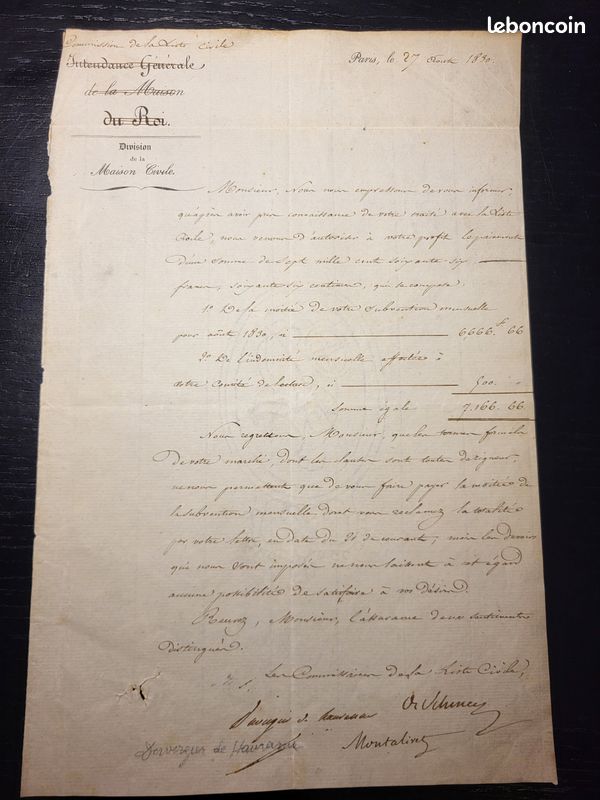 leboncoin
Commission de la Liste Civile
Intendance Générale
de la Maison
du Roi.
Division
de la
Maison Civile.
Paris, le 27 Août 1830.
Monsieur, Nous nous empressons de vous informer,
qu'après avoir pris connaissance de votre traité avec la Liste
Civile, nous venons d'autoriser à votre profit le paiement
d'une somme de Sept mille cent soixante six
francs, soixante six centimes, qui se compose
1º De la moitié de votre Subvention mensuelle
pour août 1830, ci 6666.f 66
2º De l'indemnité mensuelle affectée à
votre Comité de lecture, ci 500. "
Somme égale 7,166. 66
Nous regrettons, Monsieur, que les termes formels
de votre marché, dont les clauses sont toutes de rigueur,
ne nous permettent que de vous faire payer la moitié de
la subvention mensuelle dont vous réclamez la totalité
par votre lettre, en date du 24 de courant; mais les devoirs
qui nous sont imposés ne nous laissent à cet égard
aucune possibilité de satisfaire à vos désirs.
Recevez, Monsieur, l'assurance de nos sentiments
distingués.
Les Commissaires de la Liste Civile,
Duvergier de Hauranne
de Schonen
Montalivet
Duvergier de Hauranne